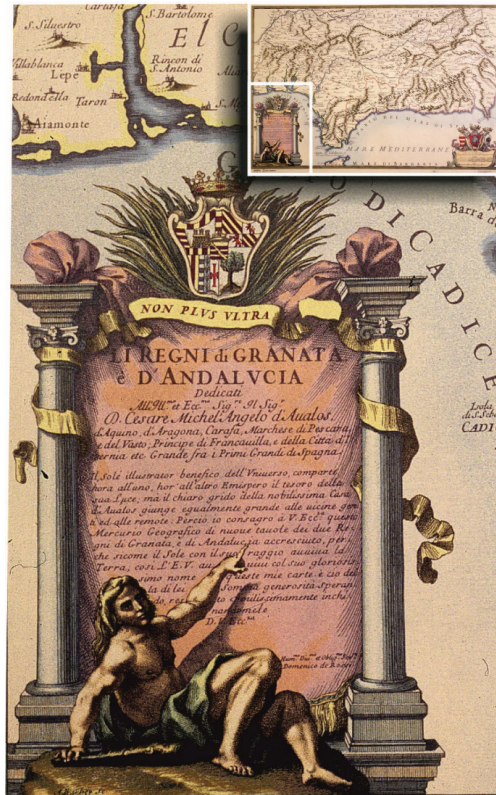 S. Siluestro
S. Bartolome
El C
Villablanca
Lepe
Rincon di
S. Antonio
Redondella Taron
Aiamonte
MARE MEDITERRANE
O DI CADICE
Barra d
Isola
CADI
NON PLVS VLTRA
LI REGNI di GRANATA
è D'ANDALVCIA
Dedicati
All'Ill.mo et Ecc.mo Sig.re Il Sig.r
D. Cesare Michel'Angelo d'Aualos,
d'Aquino, d'Aragona, Carafa, Marchese di Pescara,
e del Vasto, Principe di Francauilla, e della Città d'I
sernia etc Grande frà i Primi Grandi di Spagna.
Il Sole illustrator benefico dell'Vniuerso, comparte
hora all'uno, hor all'altro Emispero il tesoro della
sua Luce, mà il chiaro grido della nobilissima Casa
d'Aualos giunge egualmente grande alle uicine gen
ti ed alle remote. Perciò io consagro à V. Ecc.za questo
Mercurio Geografico di nuoue tauole dei due Re
gni di Granata, e di Andalucia accresciuto, per
che sicome il Sole con il suo raggio auuiua la
Terra, così L'E.V. auuiue col suo glorioso
simo nome queste mie carte è ciò de
ta di lei Somma generosità Speran
do, res ofondissimamente inchi
nandomele
D. V. Ecc.za
Domenico de Rossi